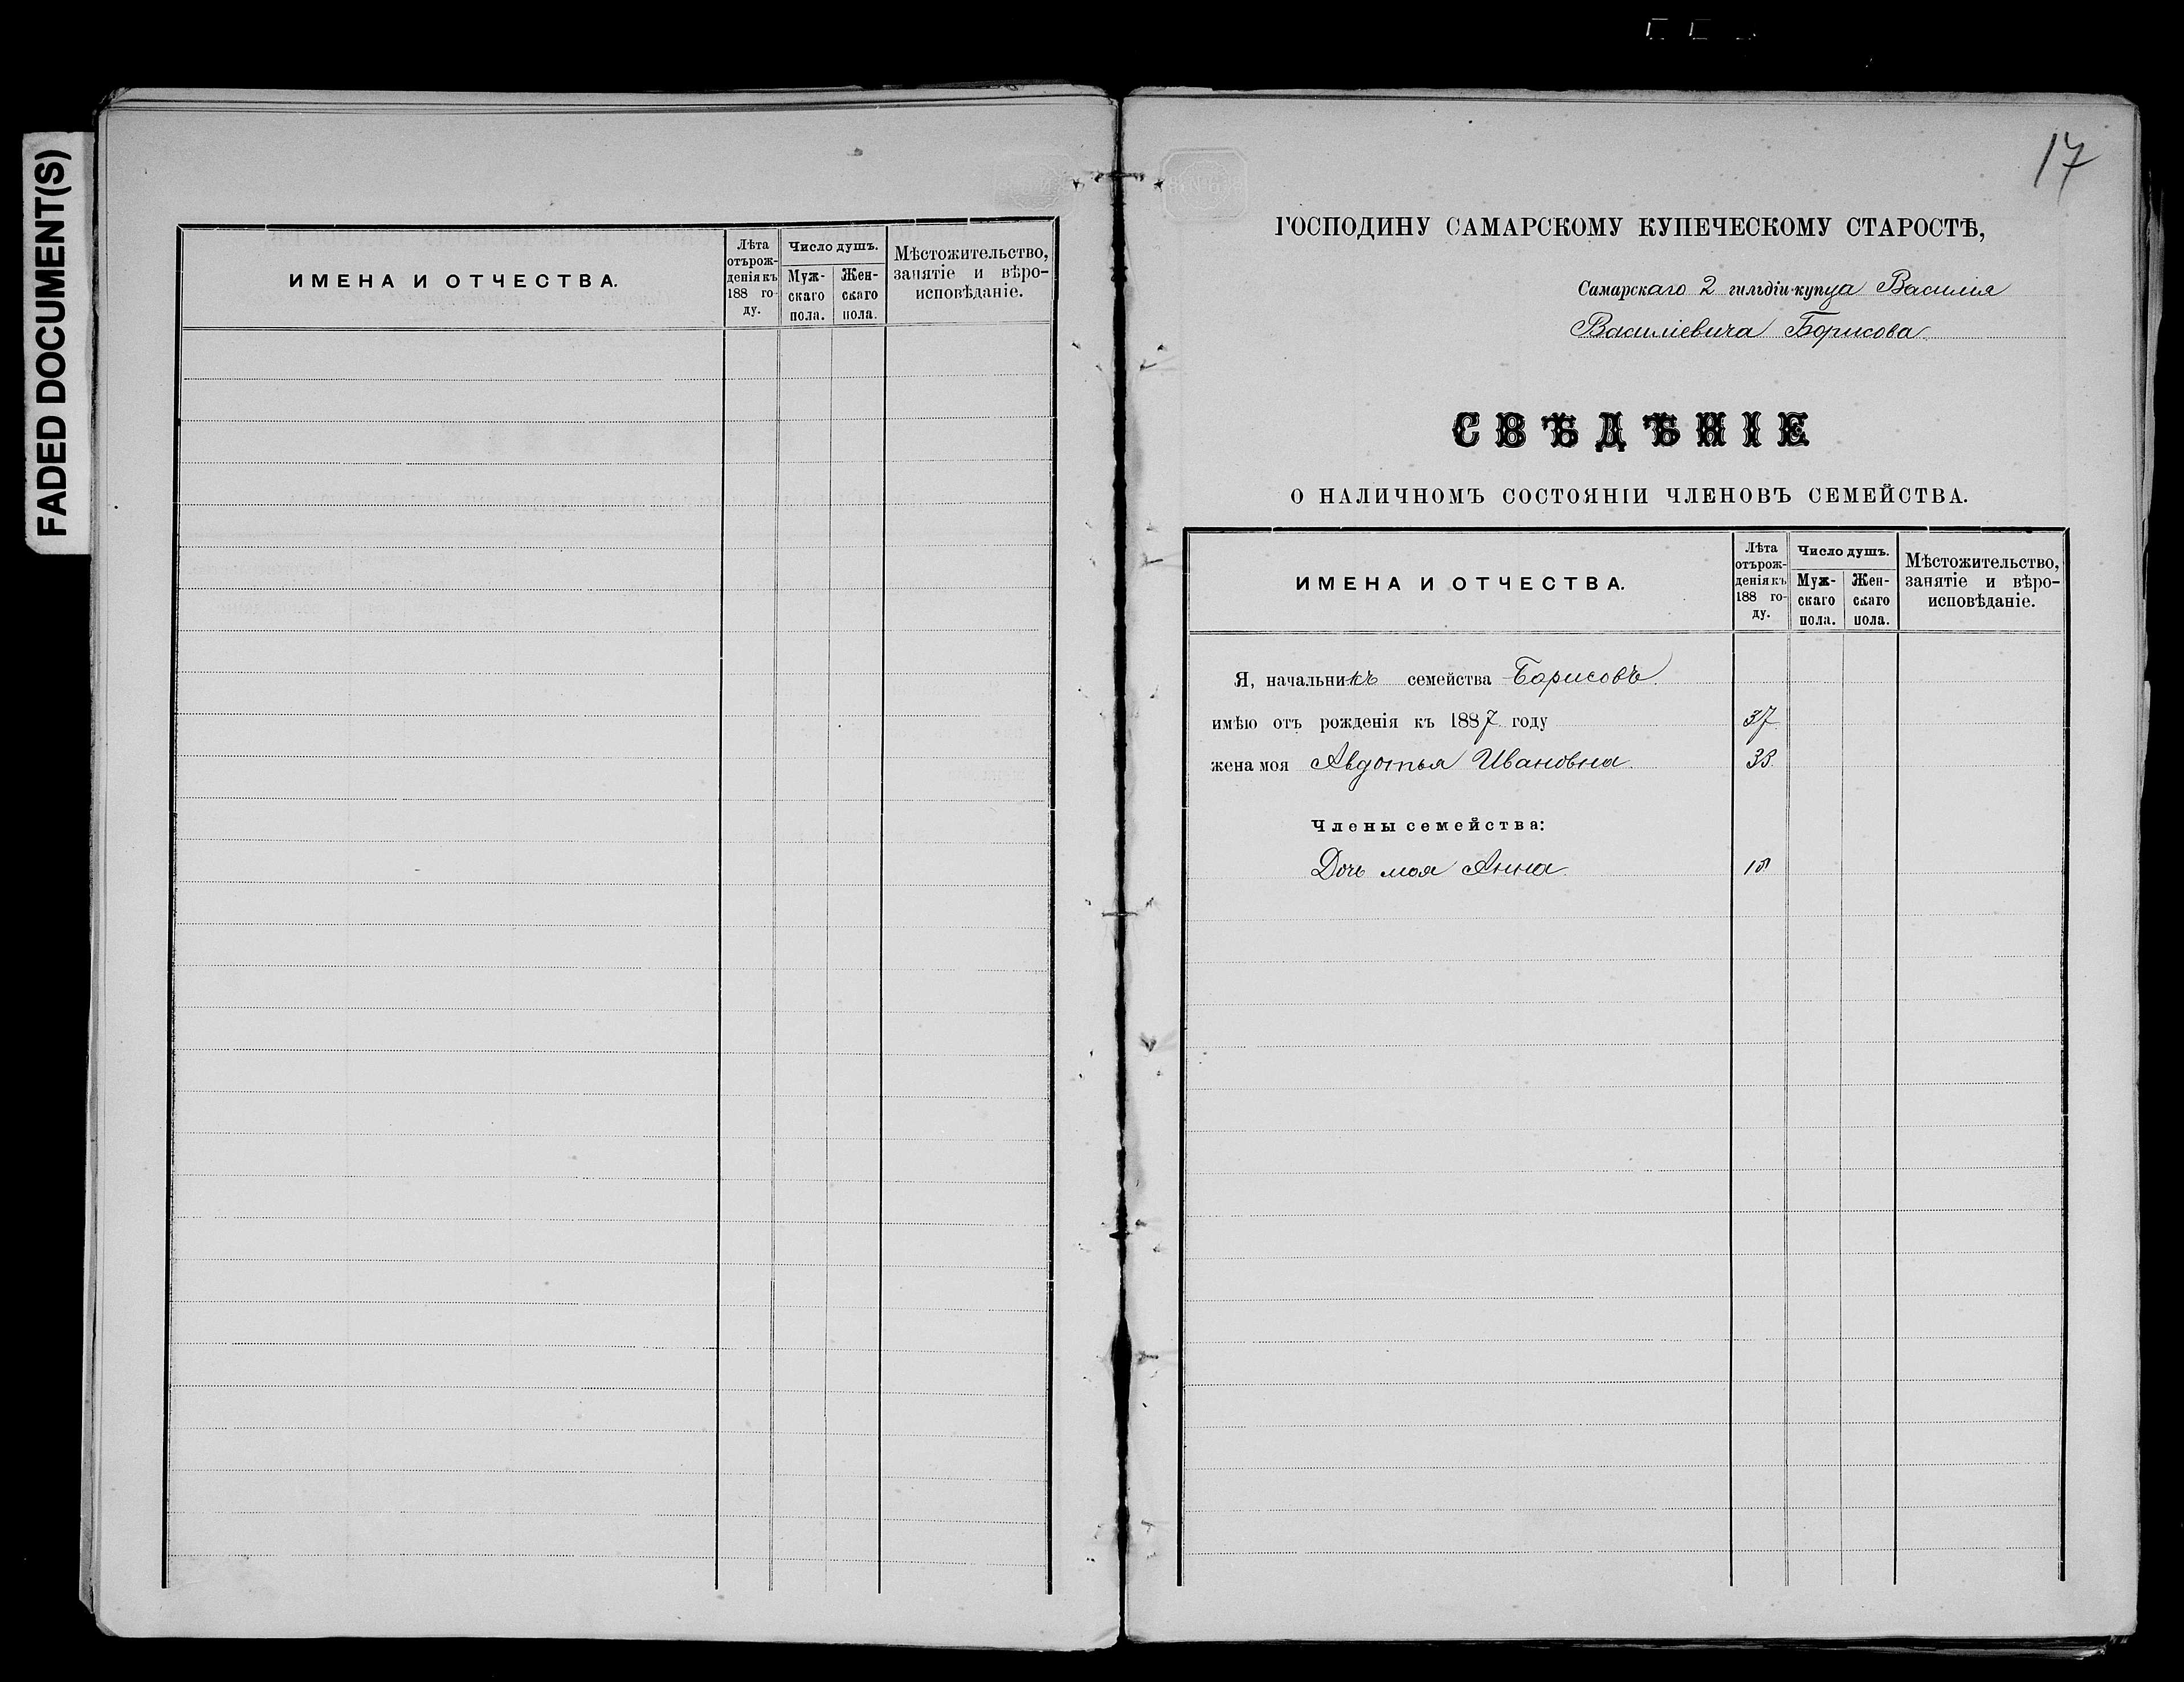 FADED DOCUMENT(S)
ИМЕНА И ОТЧЕСТВА.
Лѣта отърожденія къ 188 году.
Число душъ.
Мужскаго пола.
Женскаго пола.
Мѣстожительство, занятіе и вѣроисповѣданіе.
17
ГОСПОДИНУ САМАРСКОМУ КУПЕЧЕСКОМУ СТАРОСТѢ,
Самарскаго 2 гильдіи купца Василія
Василіевича Борисова
СВѢДѢНІЕ
О НАЛИЧНОМЪ СОСТОЯНІИ ЧЛЕНОВЪ СЕМЕЙСТВА.
ИМЕНА И ОТЧЕСТВА.
Лѣта отърожденія къ 188 году.
Число душъ.
Мужскаго пола.
Женскаго пола.
Мѣстожительство, занятіе и вѣроисповѣданіе.
Я, начальникъ семейства Борисовъ
имѣю отъ рожденія къ 1887 году 37
жена моя Авдотья Ивановна 38
Члены семейства:
Дочь моя Анна